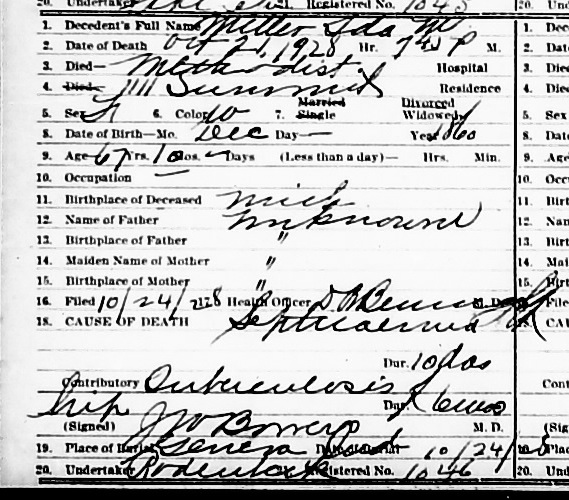 20. Undertaker 21. Registered No. 1045 20. Und
1. Decedent's Full Name Miller Ida M 1. Dece
2. Date of Death Oct 21, 1928 Hr. 7 45 P M. 2. Date
3. Died— Methodist Hospital 3. Died
4. Died— 1111 Summit Residence 4. Died
5. Sex F 6. Color W 7. Married Single Divorced Widowed / 5. Sex
8. Date of Birth—Mo. Dec Day— Year 1860 8. Date
9. Age 67 Yrs. 10 Mos. — Days (Less than a day)— Hrs. Min. 9. Age
10. Occupation — 10. Occ
11. Birthplace of Deceased Mich 11. Birt
12. Name of Father Unknown 12. Nan
13. Birthplace of Father " 13. Birt
14. Maiden Name of Mother " 14. Mai
15. Birthplace of Mother " 15. Birt
16. Filed 10/24/1928 Health Officer M. D. File
18. CAUSE OF DEATH Septicaemia 18. CA
Dur. 10 das
Contributory Tuberculosis Dur. 6 mos Cont
hip
(Signed) J W Bowers M. D. (Sig
19. Place of Burial Geneva Ind Date of Burial 10/24/28 19. Plac
20. Undertaker 21. Registered No. 1046 20. Und